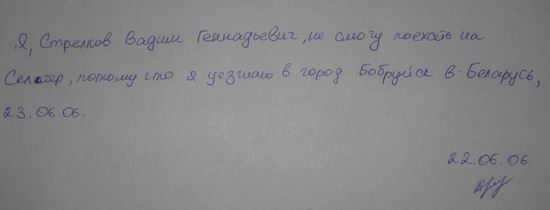 Я, Стрелков Вадим Геннадьевич, не смогу поехать на
Селигер, потому что я уезжаю в город Бобруйск в Беларусь,
23.06.06.
22.06.06.